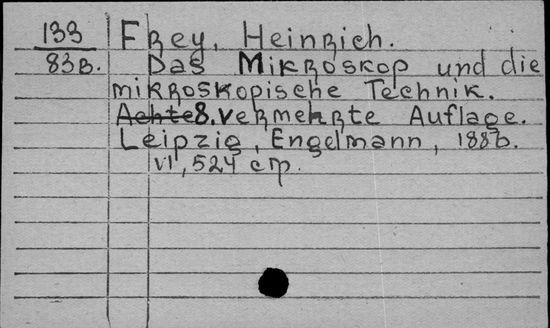 133
83в.
Frey, Heinrich.
Das Mikroskop und die
mikroskopische Technik.
Achte 8. vermehrte Auflage.
Leipzig, Engelmann, 1886.
VI, 524 стр.